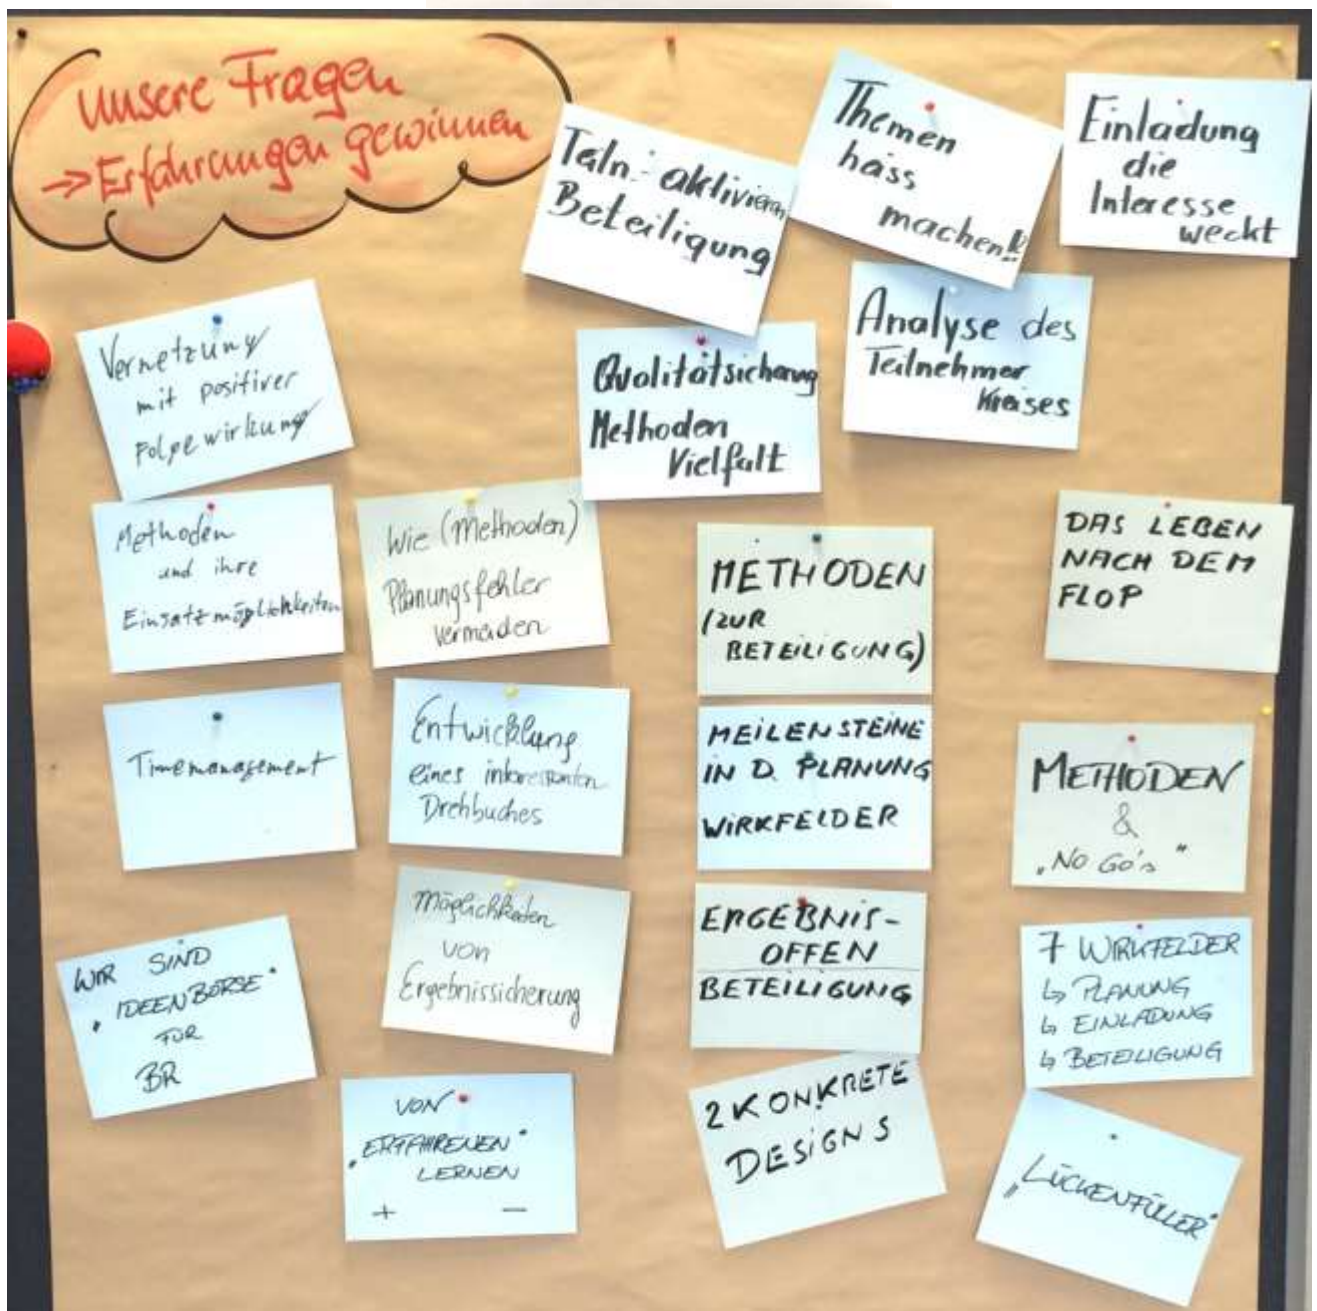 Unsere Fragen
→ Erfahrungen gewinnen
Teiln. aktivieren
Beteiligung
Themen
heiss
machen!!
Einladung
die
Interesse
weckt
Vernetzung
mit positiver
Folgewirkung
Qualitätsicherung
Methoden
Vielfalt
Analyse des
Teilnehmer
Kreises
Methoden
und ihre
Einsatzmöglichkeiten
Wie (Methoden)
Planungsfehler
vermeiden
METHODEN
(ZUR
BETEILIGUNG)
DAS LEBEN
NACH DEM
FLOP
Timemanagement
Entwicklung
eines interessanten
Drehbuches
MEILENSTEINE
IN D. PLANUNG
WIRKFELDER
METHODEN
&
„NO GO's"
WIR SIND
„IDEENBÖRSE"
FÜR
BR
Möglichkeiten
von
Ergebnissicherung
ERGEBNIS-
OFFEN
BETEILIGUNG
7 WIRKFELDER
↳ PLANUNG
↳ EINLADUNG
↳ BETEILIGUNG
VON
„ERFAHRENEN"
LERNEN
+ −
2 KONKRETE
DESIGNS
„LÜCKENFÜLLER"